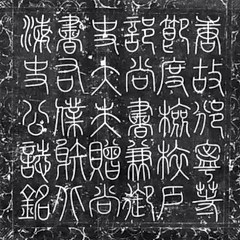 唐故邠寧等
節度檢校戶
部尚書兼御
史大夫贈尚
書右僕射北
海史公誌銘